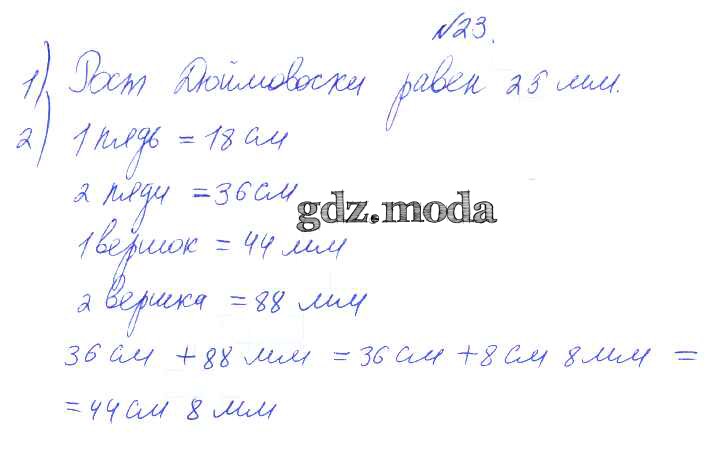 №23.
1) Рост Дюймовочки равен 25 мм.
2) 1 пядь = 18 см
2 пяди = 36 см
gdz.moda
1 вершок = 44 мм
2 вершка = 88 мм
36 см + 88 мм = 36 см + 8 см 8 мм =
= 44 см 8 мм